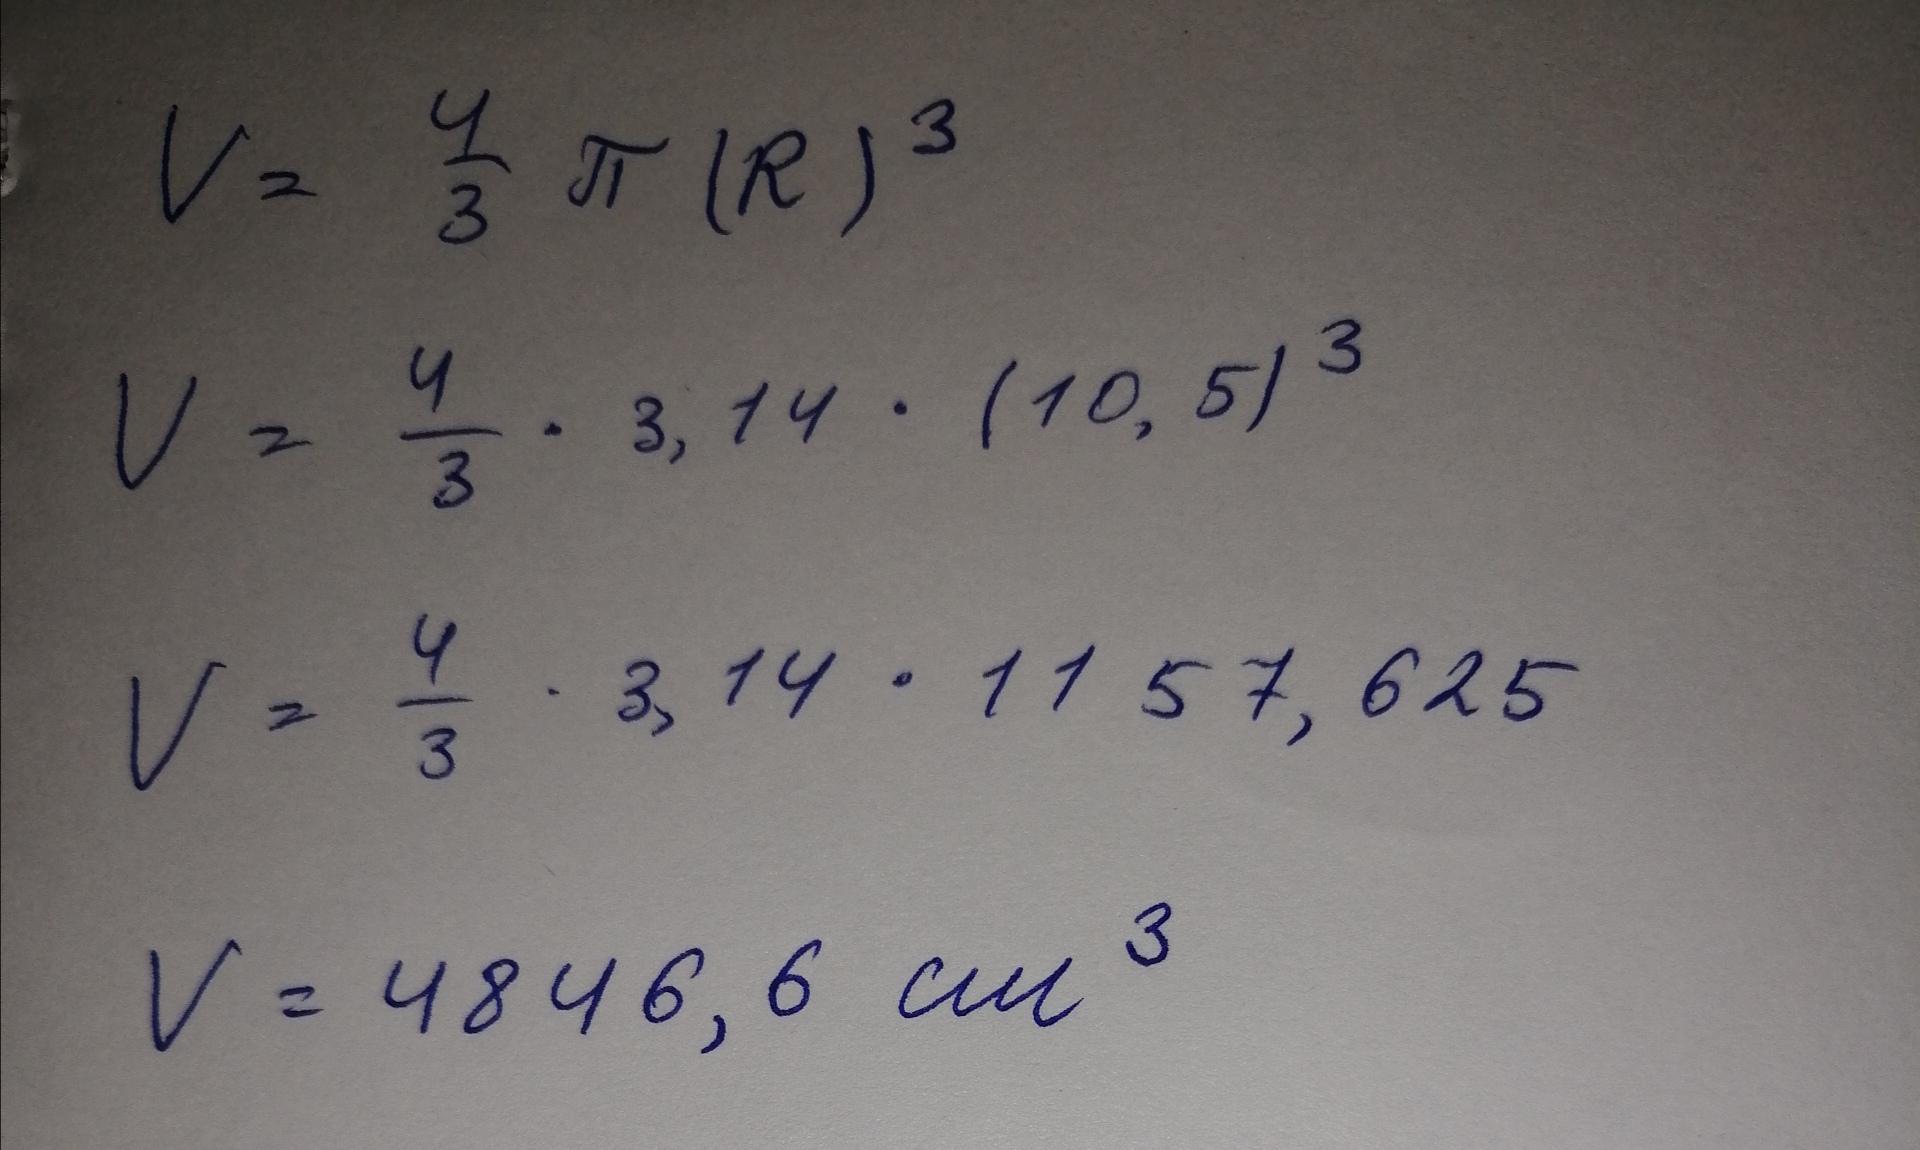 V = 4/3 π (R)³
V = 4/3 · 3,14 · (10,5)³
V = 4/3 · 3,14 · 1157,625
V = 4846,6 см³